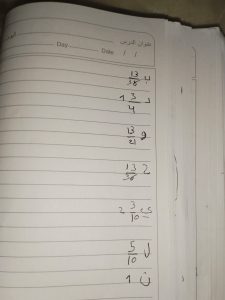 عنوان الدرس
Day Date / /
ب 13/38
د 1 3/4
و 13/21
ح 13/38
ي 2 3/10
ل 5/10
ن 1